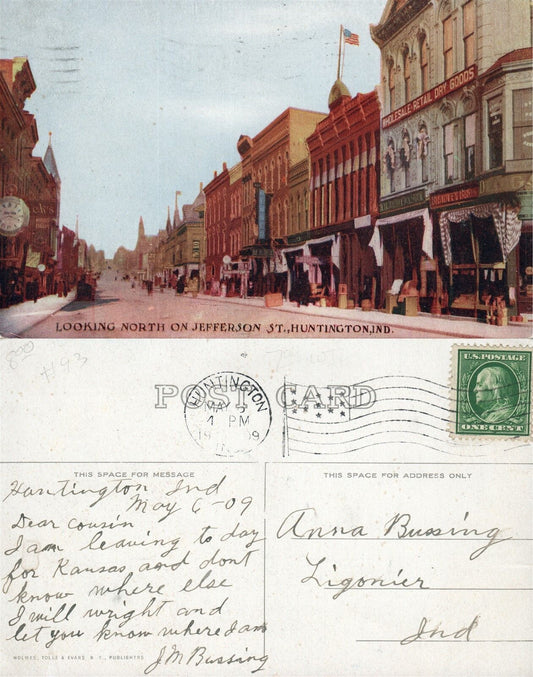 WHOLESALE & RETAIL DRY GOODS
LOOKING NORTH ON JEFFERSON ST., HUNTINGTON, IND.
800
#93
POST CARD
HUNTINGTON
MAY
4 PM
1909
U.S. POSTAGE
ONE CENT
THIS SPACE FOR MESSAGE
THIS SPACE FOR ADDRESS ONLY
Huntington Ind
May 6-09
Dear cousin
I am leaving to day
for Kansas and dont
know where else
I will wright and
let you know where I am
J M Bussing
Anna Bussing
Ligonier
Ind
HOLMES, TOLLE & EVANS, N. Y., PUBLISHERS